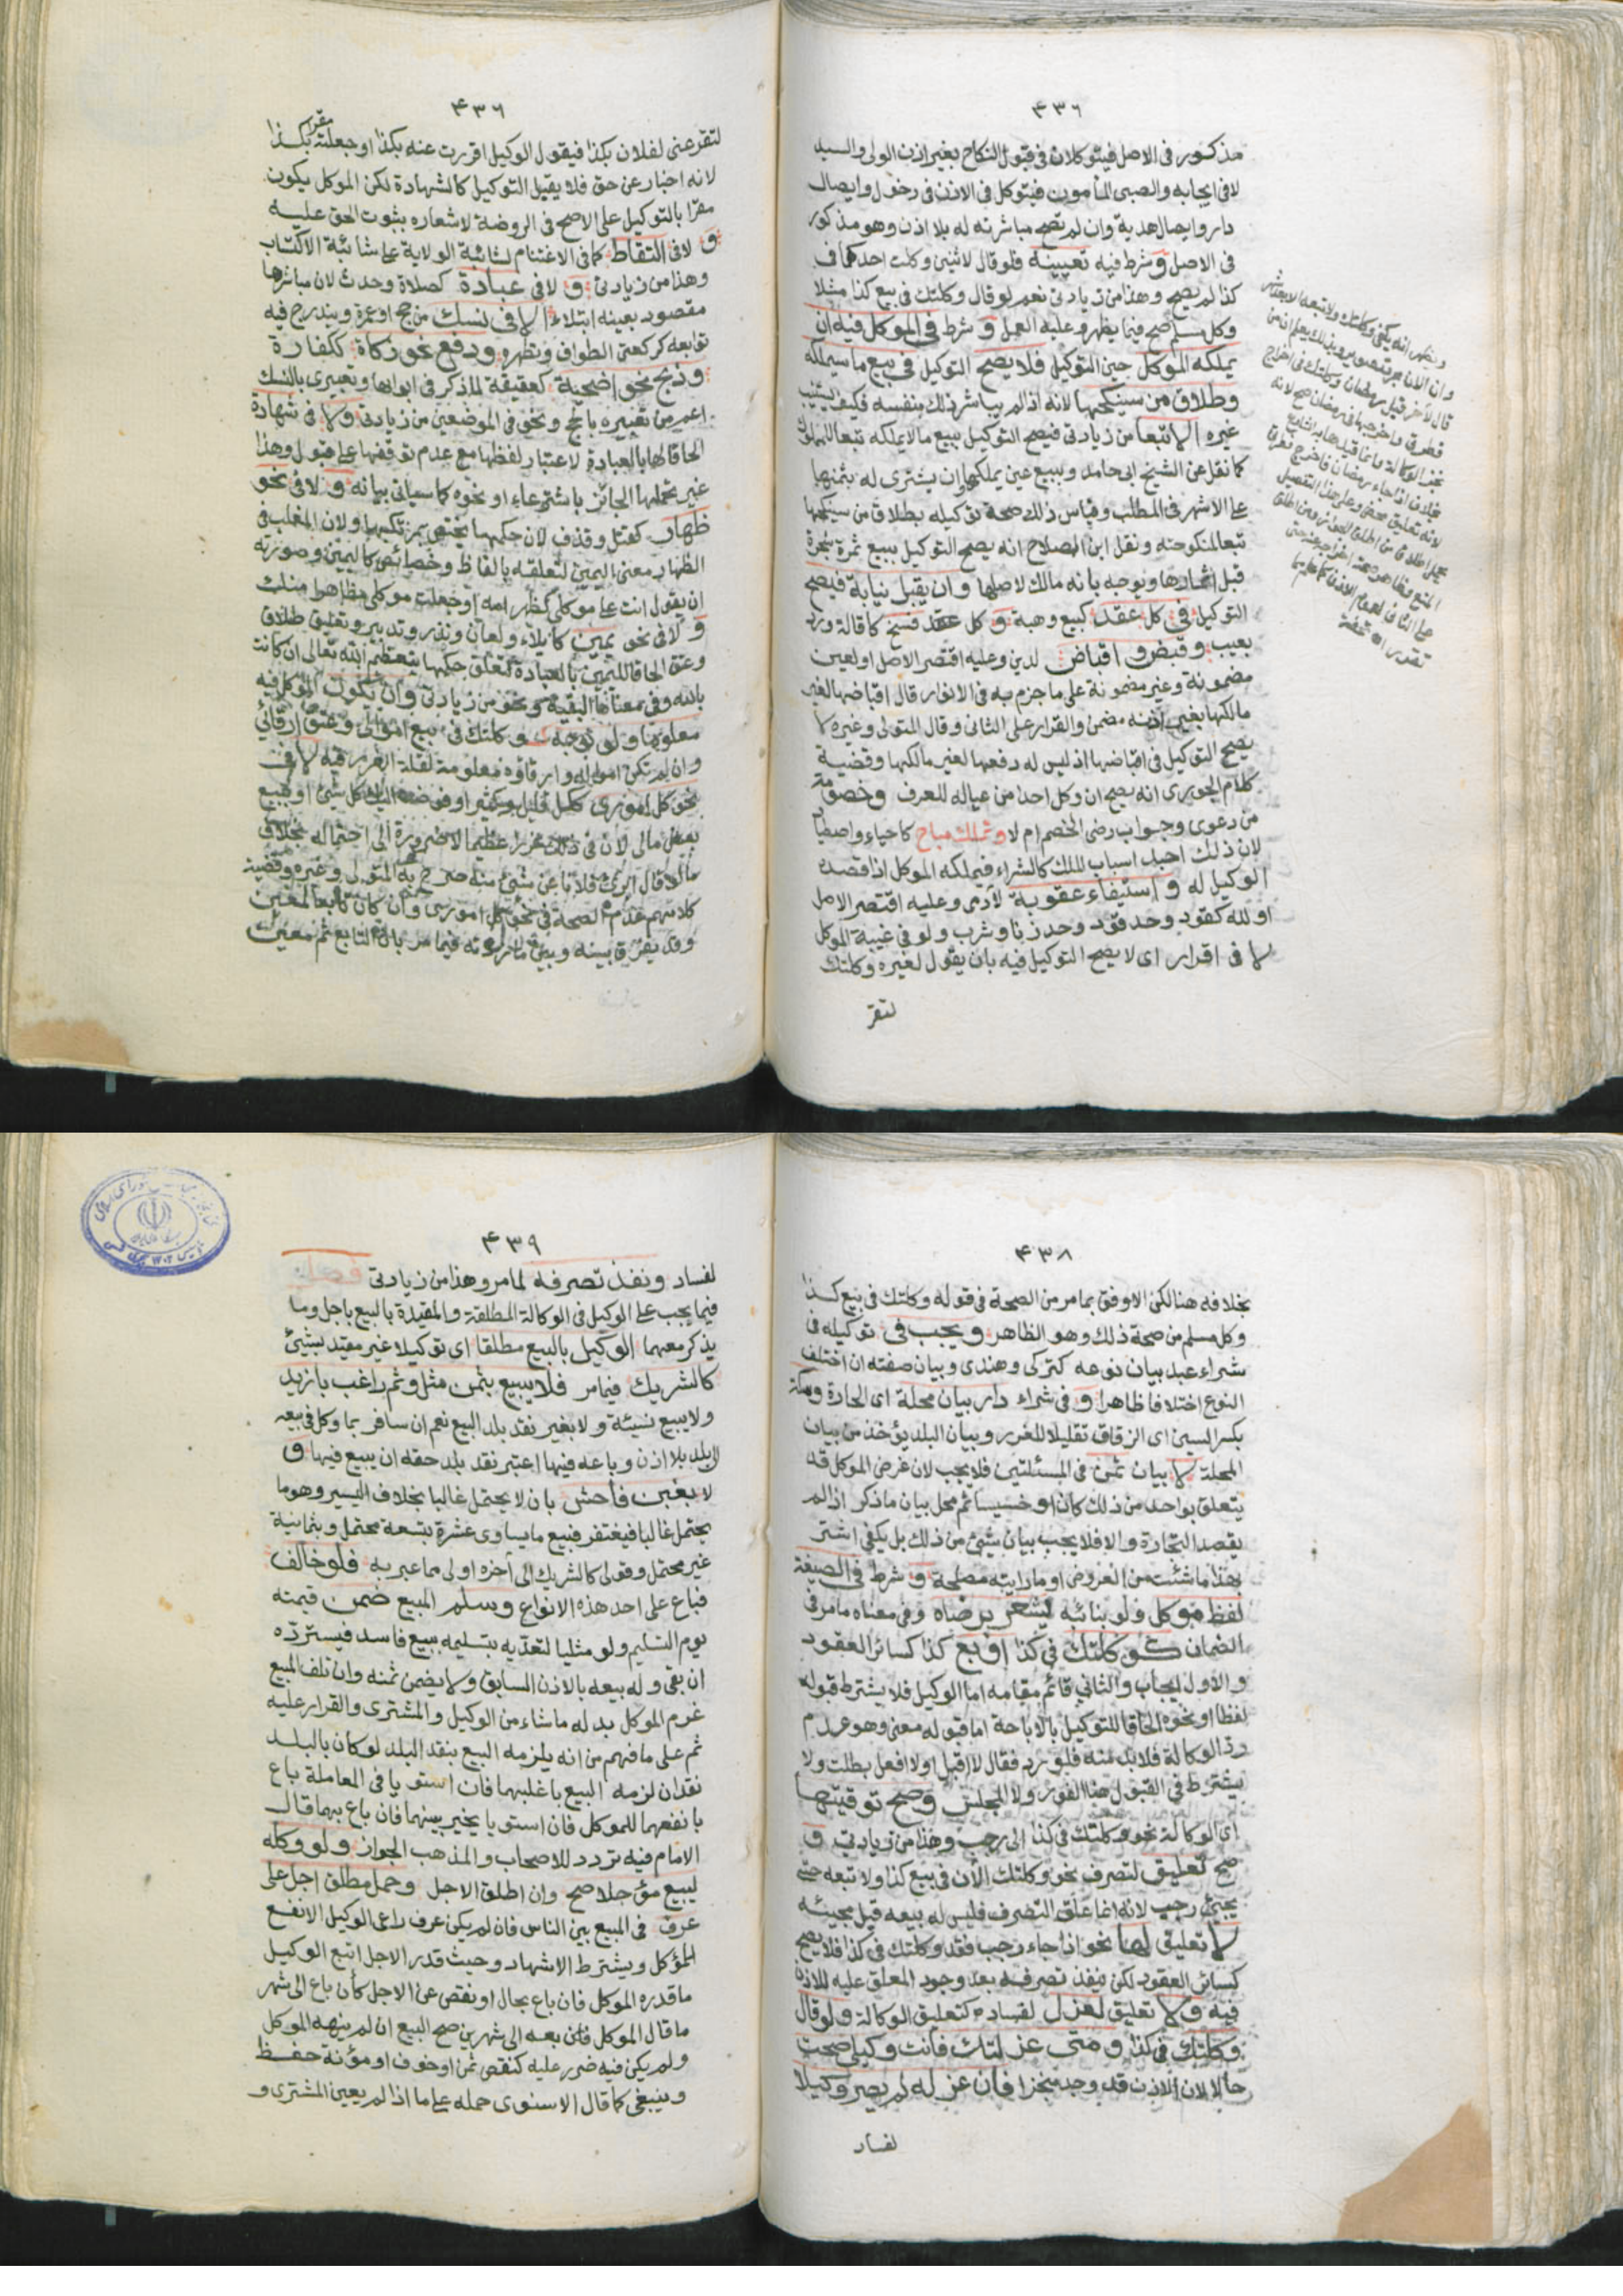 ٤٣٦
مذكور فى الاصل فيتوكلان فى قبول النكاح بغير اذن الولى والسيد
لا فى ايجابه والصبى المأمون فيتوكل فى الاذن فى دخول وايصال
دار وايصال هدية وان لم تصح مباشرته له بلا اذن وهو مذكور
فى الاصل و شرط فيه تعيينه فلو قال لاثنين وكلت احدكما فى
كذا لم يصح وهذا من زيادتى نعم لو قال وكلتك فى بيع كذا مثلا
وكل مسلم صح فيما يظهر وعليه العمل و شرط فى الموكل فيه ان
يملكه الموكل حين التوكيل فلا يصح التوكيل فى بيع ما سيملكه
وطلاق من سينكحها لانه اذا لم يباشر ذلك بنفسه فكيف يستنيب
غيره الا تبعا من زيادتى فيصح التوكيل ببيع ما لا يملكه تبعا للمملوك
كما نقل عن الشيخ ابى حامد وببيع عين يملكها وان يشترى له بثمنها
على الاشهر فى المطلب وقياس ذلك صحة توكيله بطلاق من سينكحها
تبعا لمنكوحته ونقل ابن الصلاح انه يصح التوكيل ببيع ثمرة شجرة
قبل اثمارها ويوجه بانه مالك لاصلها و ان يقبل نيابة فيصح
التوكيل فى كل عقد كبيع وهبة و كل عقد فسخ كاقالة ورد
بعيب و قبض و اقباض لدين وعليه اقتصر الاصل او لعين
مضمونة وغير مضمونة على ما جزم به فى الانوار قال اقباضها لغير
مالكها بغير اذنه مضمن والقرار على الثانى وقال المتولى وغيره لا
يصح التوكيل فى اقباضها اذ ليس له دفعها لغير مالكها وقضية
كلام الجورى انه يصح ان وكل احدا من عياله للعرف وخصومة
من دعوى وجواب رضى الخصم ام لا وتملك مباح كاحياء واصطياد
لان ذلك احد اسباب الملك كالشراء فيملكه الموكل اذا قصده
الوكيل له و استيفاء عقوبة لآدمى وعليه اقتصر الاصل
او لله كقود وحد قود وحد زنا وشرب ولو فى غيبة الموكل
لا فى اقرار اى لا يصح التوكيل فيه بان يقول لغيره وكلتك
لتقر
٤٣٦
لتقر عنى لفلان بكذا فيقول الوكيل اقررت عنه بكذا او جعلته مقرا بكذا
لانه اخبار عن حق فلا يقبل التوكيل كالشهادة لكن الموكل يكون
مقرا بالتوكيل على الاصح فى الروضة لاشعاره بثبوت الحق عليه
و لا فى التقاط كما فى الاغتنام لشائبة الولاية على شائبة الاكتساب
وهذا من زيادتى و لا فى عبادة كصلاة وحدث لان مباشرها
مقصود بعينه ابتلاء الا فى نسك من حج او عمرة ويندرج فيه
توابعه كركعتى الطواف وتطهر ودفع نحو زكاة ككفارة
و ذبح نحو اضحية كعقيقة لما ذكر فى ابوابها وتعبيرى بالنسك
اعم من تعبيره بالحج ونحو فى الموضعين من زيادتى ولا فى شهادة
الحاقا لها بالعبادة لاعتبار لفظها مع عدم توقفها على قبول وهذا
غير تحملها الجائز باسترعاء او نحوه كما سيأتى بيانه و لا فى نحو
ظهار كقتل وقذف لان حكمها يختص بمرتكبها ولان المغلب فى
الظهار معنى اليمين لتعلقه بالفاظ وخصائص كاليمين وصورته
ان يقول انت على موكلى كظهر امه او جعلت موكلى مظاهرا منك
و لا فى نحو يمين كايلاء ولعان ونذر وتدبير وتعليق طلاق
وعتق الحاقا لليمين بالعبادة لتعلق حكمها بتعظيم الله تعالى ان كانت
بالله وفى معناها البقية ونحو من زيادتى وان يكون الموكل فيه
معلوما ولو بوجه كـوكلتك فى بيع اموالى وعتق ارقائى
وان لم تكن امواله وارقاؤه معلومة لقلة الغرر فيه لا فى
نحو كل امورى ككل قليل وكثير او فوضت اليك كل شئ او كبيع
بعض مالى لان فى ذلك غررا عظيما لا ضرورة الى احتماله بخلاف
ما لو قال ابرئ فلانا عن شئ منه صرح به المتولى وغيره وقضية
كلامهم عدم الصحة فى نحو كل امورى وان كان تابعا لمعين
وقد يفرق بينه وبين ما مر بان التابع ثم معين
٤٣٨
بخلافه هنا لكن الاوفق بما مر من الصحة فى قوله وكلتك فى بيع كذا
وكل مسلم من صحة ذلك وهو الظاهر ويجب فى توكيله فى
شراء عبد بيان نوعه كتركى وهندى وبيان صفته ان اختلف
النوع اختلافا ظاهرا و فى شراء دار بيان محلة اى الحارة وسكة
بكسر السين اى الزقاق تقليلا للغرر وبيان البلد يؤخذ من بيان
المحلة لا بيان ثمن فى المسئلتين فلا يجب لان غرض الموكل قد
يتعلق بواحد من ذلك كان او خسيسا ثم محل بيان ما ذكر اذا لم
يقصد التجارة والا فلا يجب بيان شئ من ذلك بل يكفى اشتر
بهذا ما شئت من العروض او ما رايته مصلحة و شرط فى الصيغة
لفظ موكل ولو بنائبه يشعر برضاه وفى معناه ما مر فى
الضمان كـوكلتك فى كذا او بع كذا كسائر العقود
والاول ايجاب والثانى قائم مقامه اما الوكيل فلا يشترط قبوله
لفظا او نحوه الحاقا للتوكيل بالاباحة اما قبوله معنى وهو عدم
رد الوكالة فلا بد منه فلو رد فقال لا اقبل او لا افعل بطلت ولا
يشترط فى القبول هنا الفور ولا المجلس وصح توقيتها
اى الوكالة نحو وكلتك فى كذا الى رجب وهذا من زيادتى و
صح تعليق لتصرف نحو وكلتك الآن فى بيع كذا ولا تبعه حتى
يجئ رجب لانه انما علق التصرف فليس له بيعه قبل مجيئه
لا تعليق لها نحو اذا جاء رجب فقد وكلتك فى كذا فلا يصح
كسائر العقود لكن ينفذ تصرفه بعد وجود المعلق عليه للاذن
فيه ولا تعليق لعزل لفساده كتعليق الوكالة ولو قال
وكلتك فى كذا و متى عزلتك فانت وكيلى صحت
حالا لان الاذن قد وجد منجزا فان عزله لم يصر وكيلا
لفساد
٤٣٩
لفساد ونفذ تصرفه لما مر وهذا من زيادتى فصل
فيما يجب على الوكيل فى الوكالة المطلقة والمقيدة بالبيع باجل وما
يذكر معهما الوكيل بالبيع مطلقا اى توكيلا غير مقيد بشئ
كالشريك فيما مر فلا يبيع بثمن مثل وثم راغب بازيد
ولا يبيع نسيئة ولا بغير نقد بلد البيع نعم ان سافر بما وكل فى بيعه
لبلد بلا اذن وباعه فيها اعتبر نقد بلد حقه ان يبيع فيها و
لا بغبن فاحش بان لا يحتمل غالبا بخلاف اليسير وهو ما
يحتمل غالبا فيغتفر فبيع ما يساوى عشرة بتسعة محتمل وبثمانية
غير محتمل وقولى كالشريك الى آخره اولى مما عبر به فلو خالف
فباع على احد هذه الانواع وسلم المبيع ضمن قيمته
يوم التسليم ولو مثليا لتعديه بتسليمه ببيع فاسد فيسترده
ان بقى وله بيعه بالاذن السابق ولا يضمن ثمنه وان تلف المبيع
غرم الموكل بدله ما شاء من الوكيل والمشترى والقرار عليه
ثم على ما فهم من انه يلزمه البيع بنقد البلد لو كان بالبلد
نقدان لزمه البيع باغلبهما فان استويا فى المعاملة باع
بانفعهما للموكل فان استويا يخير بينهما فان باع بهما قال
الامام فيه تردد للاصحاب والمذهب الجواز ولو وكله
ليبيع مؤجلا صح وان اطلق الاجل وحمل مطلق اجل على
عرف فى المبيع بين الناس فان لم يكن عرف راعى الوكيل الانفع
للموكل ويشترط الاشهاد وحيث قدر الاجل اتبع الوكيل
ما قدره الموكل فان باع بحال او نقص عن الاجل كأن باع الى شهر
ما قال الموكل فان بعه الى شهرين صح البيع ان لم ينهه الموكل
ولم يكن فيه ضرر عليه كنقص ثمن او خوف او مؤنة حفظ
وينبغى كما قال الاسنوى حمله على ما اذا لم يعين المشترى و